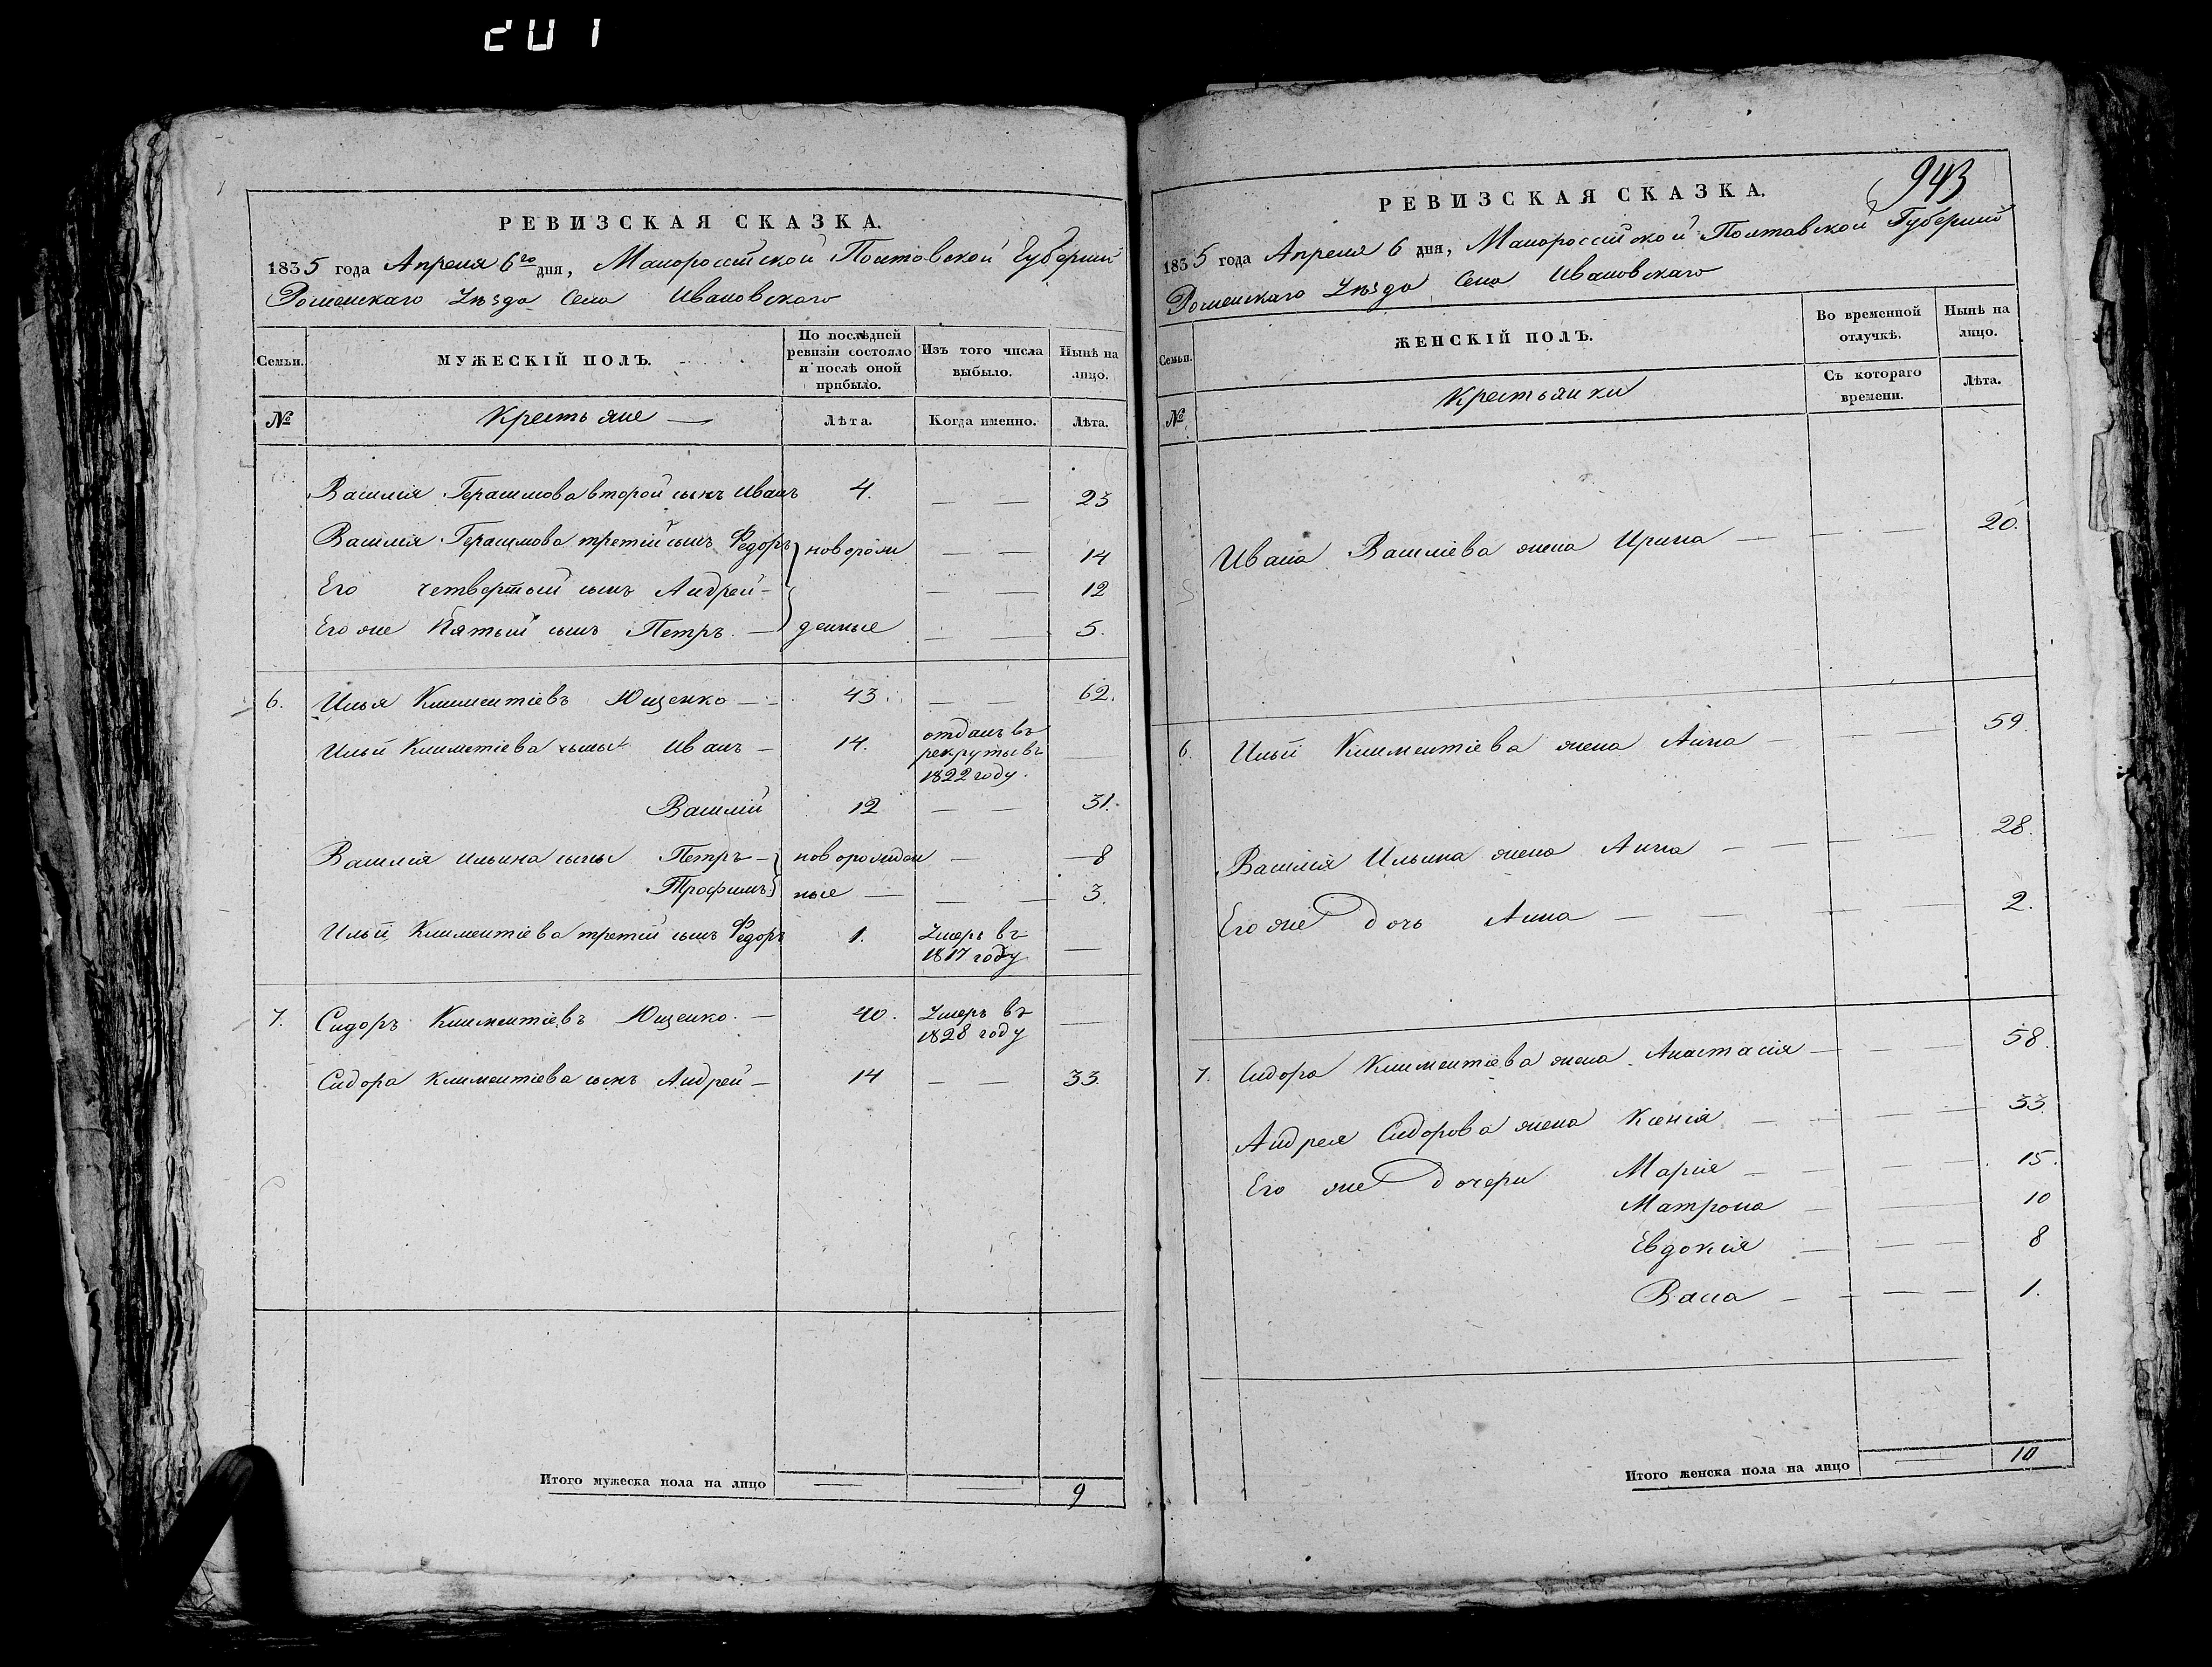 201
РЕВИЗСКАЯ СКАЗКА.
1835 года Апреля 6го дня, Малороссійской Полтавской Губерніи
Роменскаго Уѣзда Села Ивановскаго
Семьи.
МУЖЕСКІЙ ПОЛЪ.
По послѣдней ревизіи состояло и послѣ оной прибыло.
Изъ того числа выбыло.
Нынѣ на лицо.
№ Крестьяне — Лѣта. Когда именно. Лѣта.
Василія Герасимова второй сынъ Иванъ 4. — — 23
Василія Герасимова третій сынъ Федоръ новорож — — 14
Его четвертый сынъ Андрей — — — 12
Его же Пятый сынъ Петръ. — денные — — 5.
6. Илья Климентіевъ Ющенко — 43. — — 62.
Ильи Климетіева сыны Иванъ — 14. отданъ въ рекруты въ 1822 году. —
Василій 12 — — 31.
Василія Ильина сыны Петръ — новорожден — — 8
Трофимъ ные — — — 3.
Ильи Климентіева третій сынъ Федоръ 1. Умеръ въ 1817 году —
7. Сидоръ Климентіевъ Ющенко. — 40. Умеръ въ 1828 году —
Сидора Климентіева сынъ Андрей — 14 — — 33.
Итого мужеска пола на лицо 9
943
РЕВИЗСКАЯ СКАЗКА.
1835 года Апреля 6 дня, Малороссійской Полтавской Губерніи
Роменскаго Уѣзда Села Ивановскаго
Семьи.
ЖЕНСКІЙ ПОЛЪ.
Во временной отлучкѣ.
Нынѣ на лицо.
№ Крестьянки Съ котораго времени. Лѣта.
Ивана Василіева жена Ирина — — — 20.
6. Ильи Климентіева жена Анна — — — 59.
Василія Ильина жена Анна — — — 28.
Его же дочь Анна — — — 2.
7. Сидора Климентіева жена Анастасія — — — 58.
Андрея Сидорова жена Ксенія — — — 33.
Его же дочери Марія — — — 15.
Матрона — — — 10
Евдокія — — — 8
Васса — — — 1.
Итого женска пола на лицо 10